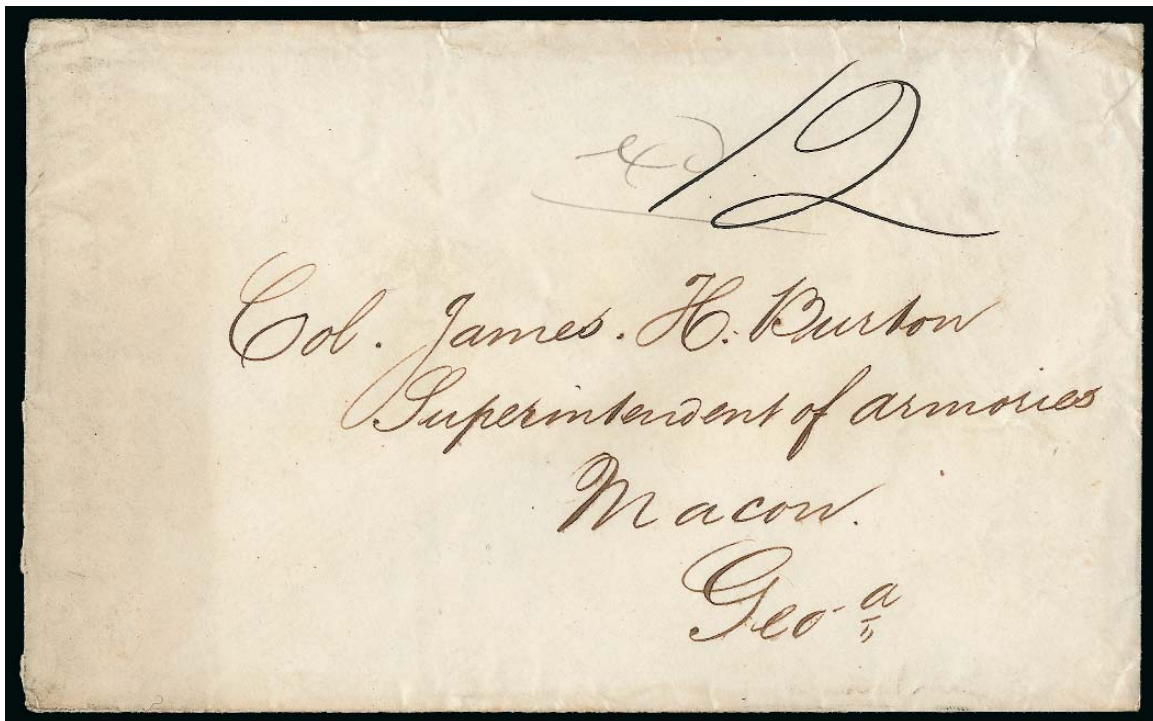 12
Col. James. H. Burton
Superintendent of armories
Macon.
Geo a